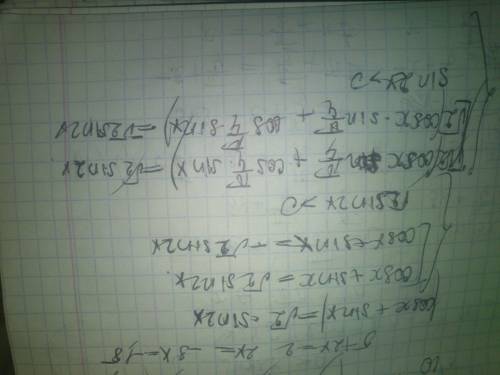 10
5+2x=2 2x=-3 x=-1,5
|cosx + sinx| = √2 · sin2x
cosx + sinx = √2 sin2x
cosx + sinx = -√2 sin2x
√2 sin2x > 0
√2(cosx sin π/4 + cos π/4 · sinx) = √2 sin2x
√2(cosx · sin π/4 + cos π/4 · sinx) = -√2 sin2x
sin 2x > 0